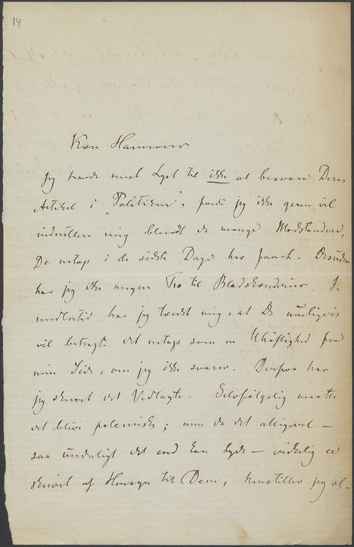 14
Kære Hammerer
Jeg havde mest Lyst til ikke at besvare Deres
Artikel i "Politiken", fordi jeg ikke gerne vil
indrullere mig blandt de mange Modstandere,
De netop i de sidste Dage har faaet. Desuden
har jeg ikke nogen Tro til Bladskriveri.
imidlertid har jeg tænkt mig, at De muligvis
vil betragte det netop som en Uhøflighed fra
min Side, om jeg ikke svarer. Derfor har
jeg skrevet det Vedlagte. Selvfølgelig maatte
det blive polemisk; men da det alligevel —
saa underligt det end kan lyde — virkelig er
skrevet af Hensyn til Dem, henstiller jeg al-